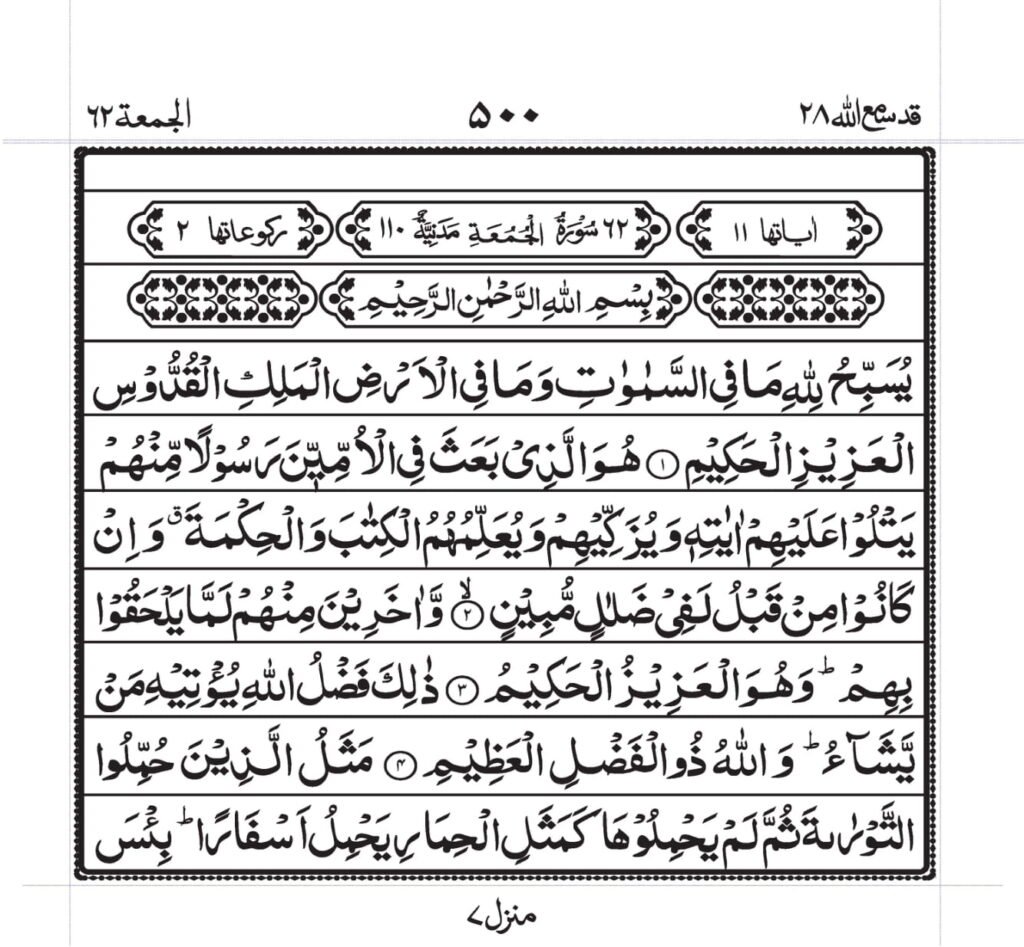 قد سمع الله ٢٨ ۵۰۰ الجمعة ٦٢
اياتها ١١ ٦٢ سُوْرَةُ الْجُمُعَةِ مَدَنِيَّةٌ ١١٠ ركوعاتها ٢
بِسْمِ اللّٰهِ الرَّحْمٰنِ الرَّحِيْمِ
يُسَبِّحُ لِلّٰهِ مَا فِى السَّمٰوٰتِ وَمَا فِى الْاَرْضِ الْمَلِكِ الْقُدُّوْسِ
الْعَزِيْزِ الْحَكِيْمِ ۝١ هُوَ الَّذِىْ بَعَثَ فِى الْاُمِّيّٖنَ رَسُوْلًا مِّنْهُمْ
يَتْلُوْا عَلَيْهِمْ اٰيٰتِهٖ وَيُزَكِّيْهِمْ وَيُعَلِّمُهُمُ الْكِتٰبَ وَالْحِكْمَةَ ق وَاِنْ
كَانُوْا مِنْ قَبْلُ لَفِىْ ضَلٰلٍ مُّبِيْنٍ ۝٢ۙ وَّاٰخَرِيْنَ مِنْهُمْ لَمَّا يَلْحَقُوْا
بِهِمْ ؕ وَهُوَ الْعَزِيْزُ الْحَكِيْمُ ۝٣ ذٰلِكَ فَضْلُ اللّٰهِ يُؤْتِيْهِ مَنْ
يَّشَآءُ ؕ وَاللّٰهُ ذُو الْفَضْلِ الْعَظِيْمِ ۝۴ مَثَلُ الَّذِيْنَ حُمِّلُوا
التَّوْرٰىةَ ثُمَّ لَمْ يَحْمِلُوْهَا كَمَثَلِ الْحِمَارِ يَحْمِلُ اَسْفَارًا ؕ بِئْسَ
منزل ٧